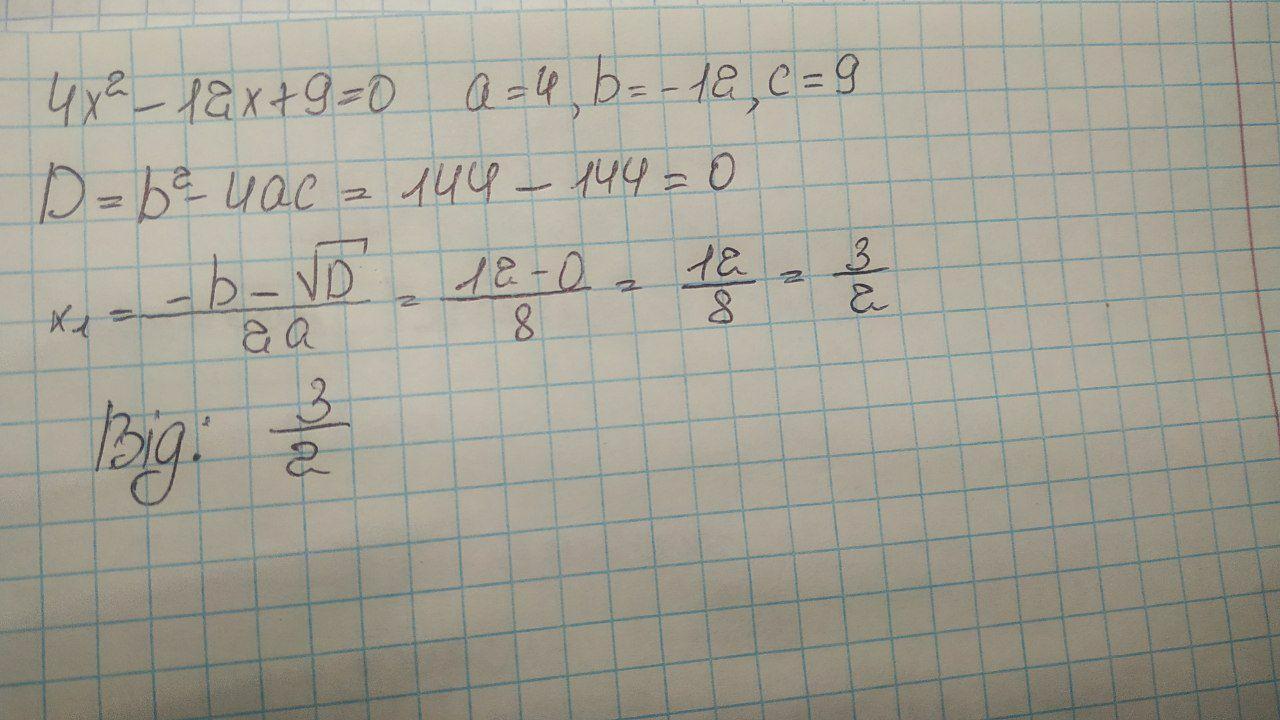 4x² - 12x + 9 = 0   a = 4, b = -12, c = 9
D = b² - 4ac = 144 - 144 = 0
x₁ = (-b - √D)/(2a) = (12 - 0)/8 = 12/8 = 3/2
Від: 3/2